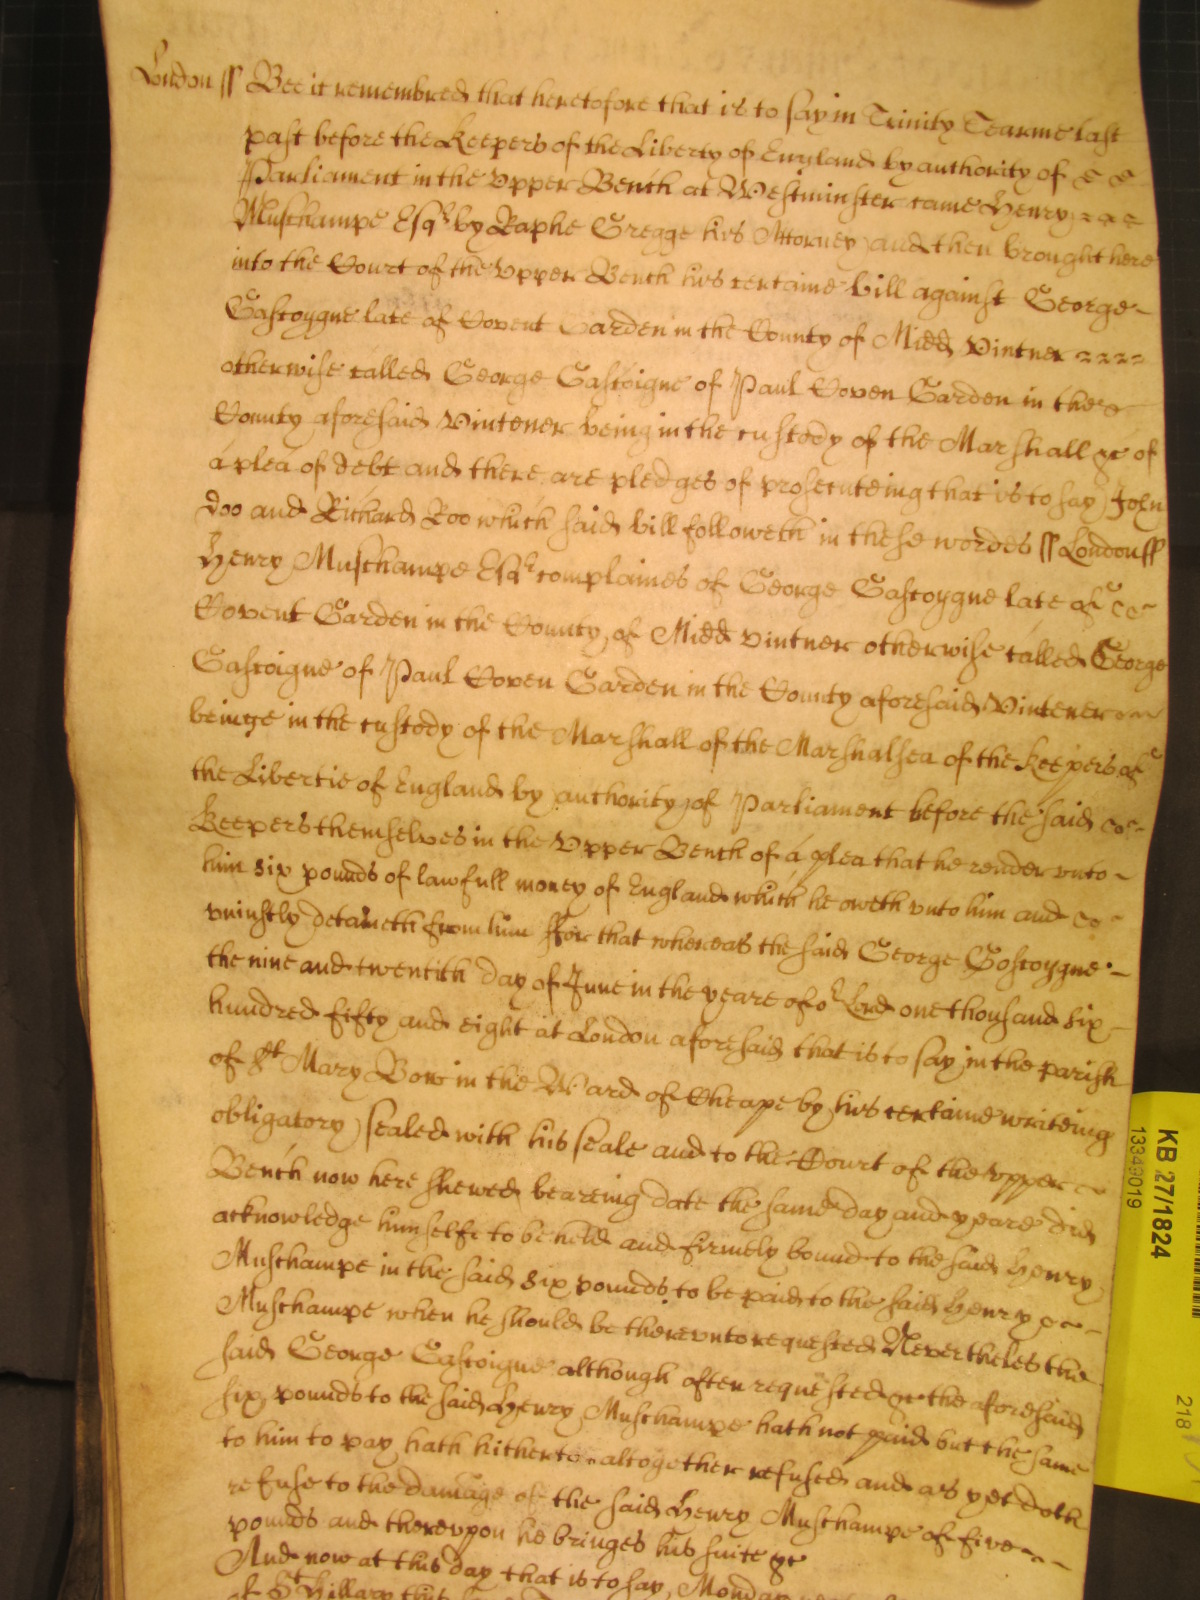 London ss Bee it remembred that heretofore that is to say in Trinity Tearme last
past before the Keepers of the Liberty of England by authority of
Parliament in the Upper Bench at Westminster came Henry
Muschampe Esqr by Raphe Gregge his Attorney and then brought here
into the Court of the Upper Bench his certaine bill against George
Gascoygne late of Covent Garden in the County of Midd Vintner
otherwise called George Gascoigne of Paul Coven Garden in the
County aforesaid Vintener being in the custody of the Marshall &c of
a plea of debt and there are pledges of prosecuteing that is to say John
Doo and Richard Roo which said bill followeth in these wordes ss London ss
Henry Muschampe Esqr complaines of George Gascoygne late of
Covent Garden in the County of Midd vintner otherwise called George
Gascoigne of Paul Coven Garden in the County aforesaid Vintener
beinge in the custody of the Marshall of the Marshalsea of the Keepers of
the Libertie of England by authority of Parliament before the said
Keepers themselves in the Upper Bench of a plea that he render unto
him six pounds of lawfull money of England which he oweth unto him and
uniustly detaineth from him ffor that whereas the said George Goscoygne
the nine and twentith day of June in the yeare of or Lord one thousand six
hundred fifty and eight at London aforesaid that is to say in the parish
of St Mary Bow in the Ward of Cheape by his certaine writeing
obligatory sealed with his seale and to the Court of the upper
Bench now here shewed beareing date the same day and yeare did
acknowledge himselfe to be held and firmely bound to the said Henry
Muschampe in the said six pounds to be paid to the said Henry
Muschampe when he should be thereunto requested Nevertheles the
said George Gascoigne although often requested &c the aforesaid
six pounds to the said Henry Muschampe hath not paid but the same
to him to pay hath hitherto altogether refused and as yet doth
refuse to the damage of the said Henry Muschampe of five
pounds and thereupon he bringes his suite &c
And now at this day that is to say Monday
of St Hillary this
KB 27/1824
13349019
218